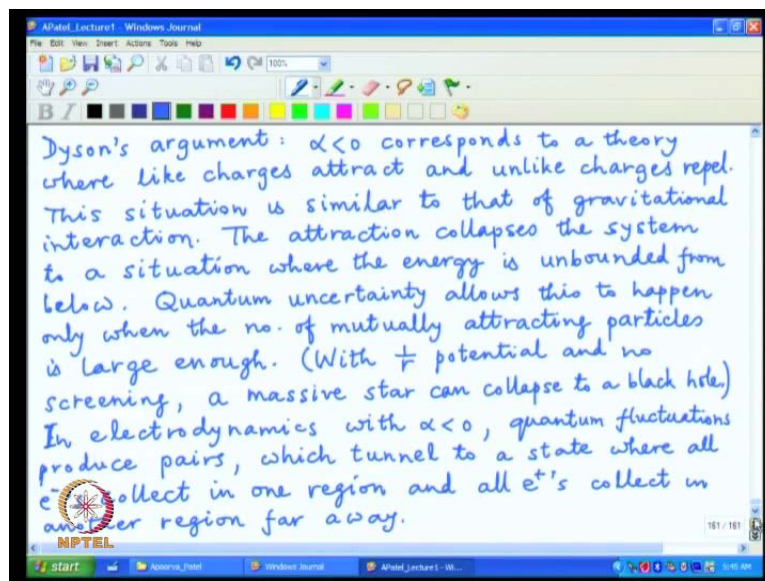 APatel_Lecture1 - Windows Journal
File Edit View Insert Actions Tools Help
100%
B I
Dyson's argument: α<0 corresponds to a theory
where like charges attract and unlike charges repel.
This situation is similar to that of gravitational
interaction. The attraction collapses the system
to a situation where the energy is unbounded from
below. Quantum uncertainty allows this to happen
only when the no. of mutually attracting particles
is large enough. (With 1/r potential and no
screening, a massive star can collapse to a black hole.)
In electrodynamics with α<0, quantum fluctuations
produce pairs, which tunnel to a state where all
collect in one region and all e⁺'s collect in
another region far away.
NPTEL
161 / 161
start Apoorva_Patel Windows Journal APatel_Lecture1 - Wi... 5:45 AM